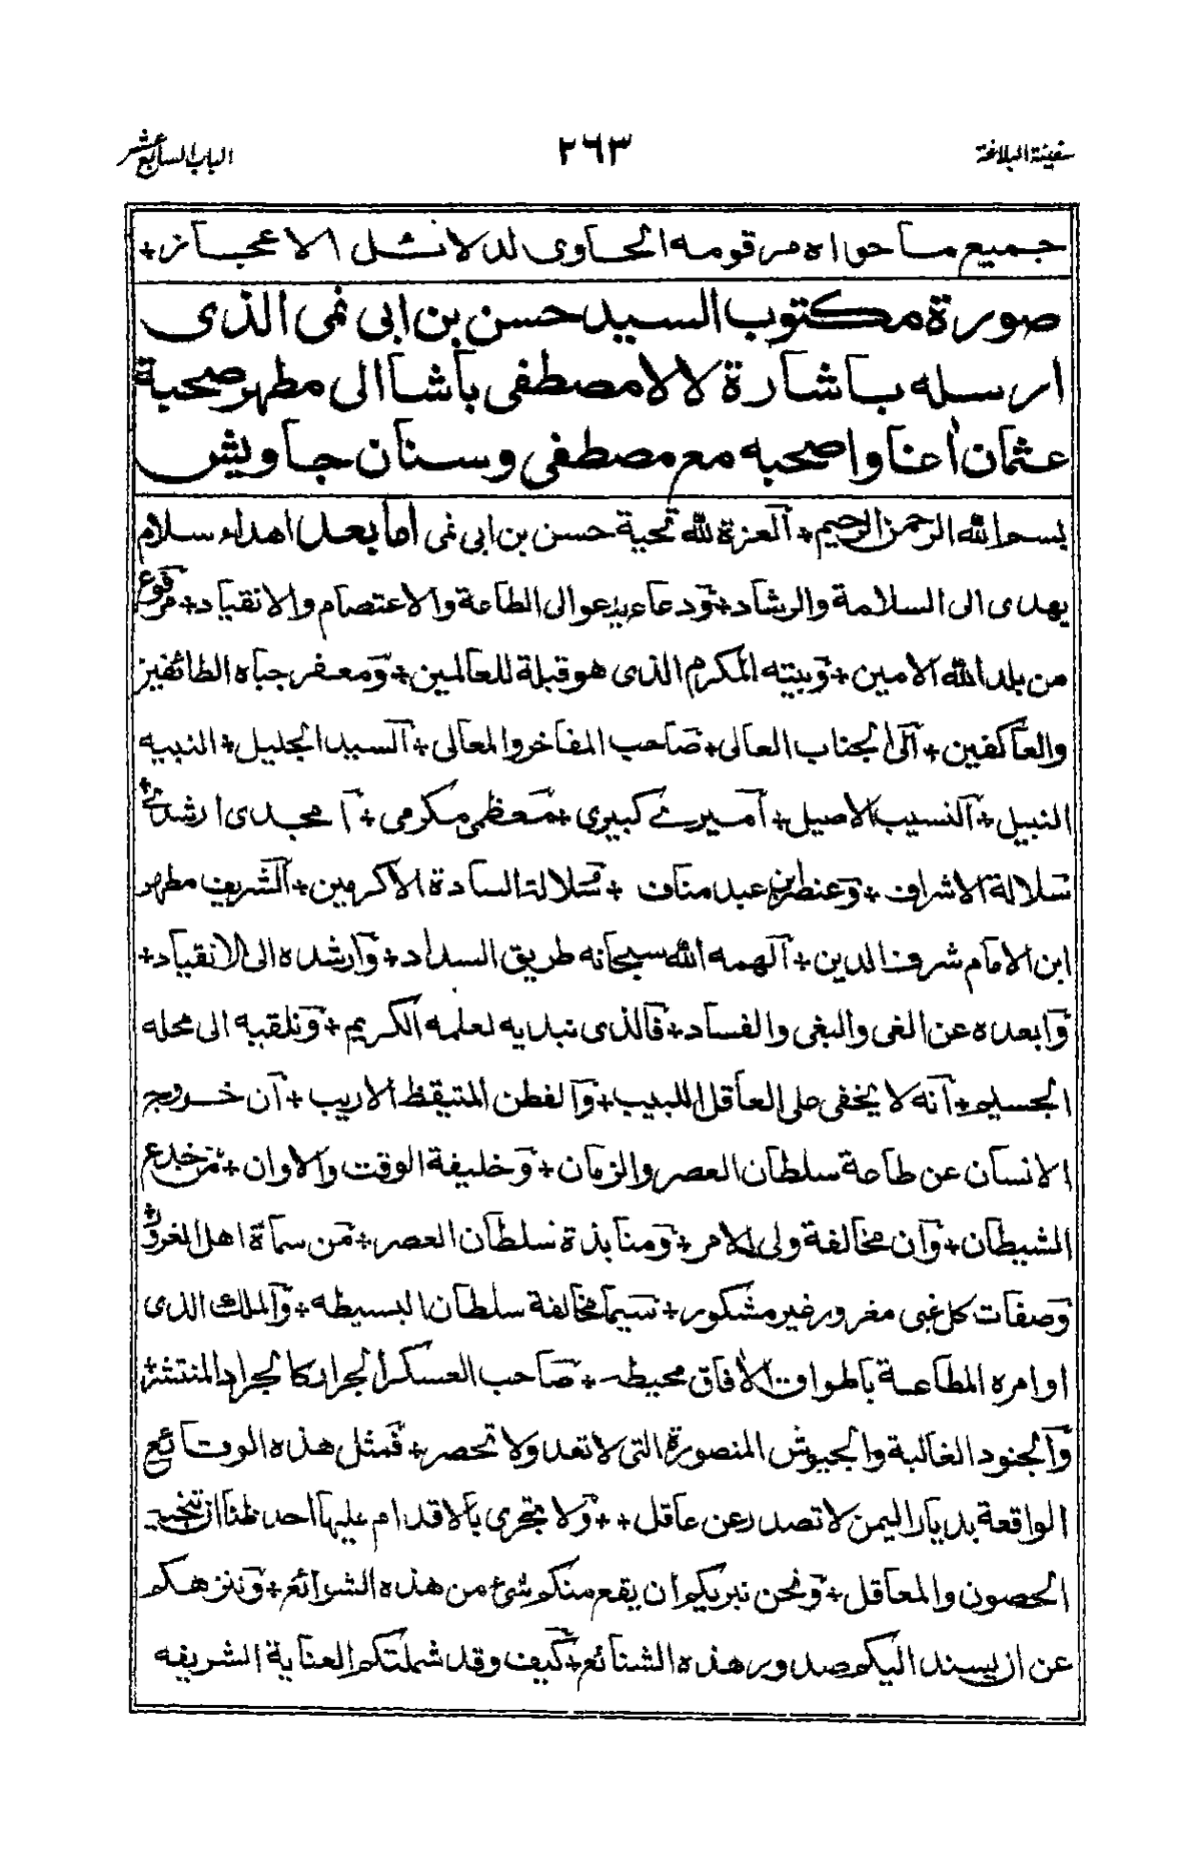 سفينة البلاغة ٢٦٣ الباب السابع عشر
جميع ما حواه مرقومه الحاوى لدلائل الاعجاز +
صورة مكتوب السيد حسن بن ابى نمى الذى
ارسله باشارة لالا مصطفى باشا الى مطهر صحبة
عثمان اغا واصحبه مع مصطفى وسنان جاويش
بسم الله الرحمن الرحيم + العزة لله تحية حسن بن ابى نمى اما بعد اهداء سلام
يهدى الى السلامة والرشاد + ودعاء يدعو الى الطاعة والاعتصام والانقياد + مرفوع
من بلد الله الامين + وبيته المكرم الذى هو قبلة للعالمين + ومعفر جباه الطائفين
والعاكفين + الى الجناب العالى + صاحب المفاخر والمعالى + السيد الجليل + النبيه
النبيل + النسيب الاصيل + اميرى كبيرى + معظمى مكرمى + امجدى ارشدى +
سلالة الاشراف + وعنصر بن عبد مناف + سلالة السادة الاكرمين + الشريف مطهر
ابن الامام شرف الدين + الهمه الله سبحانه طريق السداد + وارشده الى الانقياد +
وابعده عن الغى والبغى والفساد + فالذى نبديه لعلمه الكريم + ونلقيه الى محله
الجسيم + انه لا يخفى على العاقل اللبيب + والفطن المتيقظ الاريب + ان خروج
الانسان عن طاعة سلطان العصر والزمان + وخليفة الوقت والاوان + من خدع
الشيطان + وان مخالفة ولى الامر + ومنابذة سلطان العصر + من سمات اهل الغرور +
وصفات كل غبى مغرور غير مشكور + سيما مخالفة سلطان البسيطه + والملك الذى
اوامره المطاعة باطراف الآفاق محيطه + صاحب العسكر الجرار كالجراد المنتشر
والجنود الغالبة والجيوش المنصورة التى لا تعد ولا تحصر + فمثل هذه الوقائع
الواقعة بديار اليمن لا تصدر عن عاقل + + ولا يتجرى بالاقدام عليها احد ظنا ان تنجيه
الحصون والمعاقل + ونحن نبريكم ان يقع منكم شئ من هذه الشرائع + وننزهكم
عن ان يسند اليكم صدور هذه الشنائع + كيف وقد شملتكم العناية الشريفه